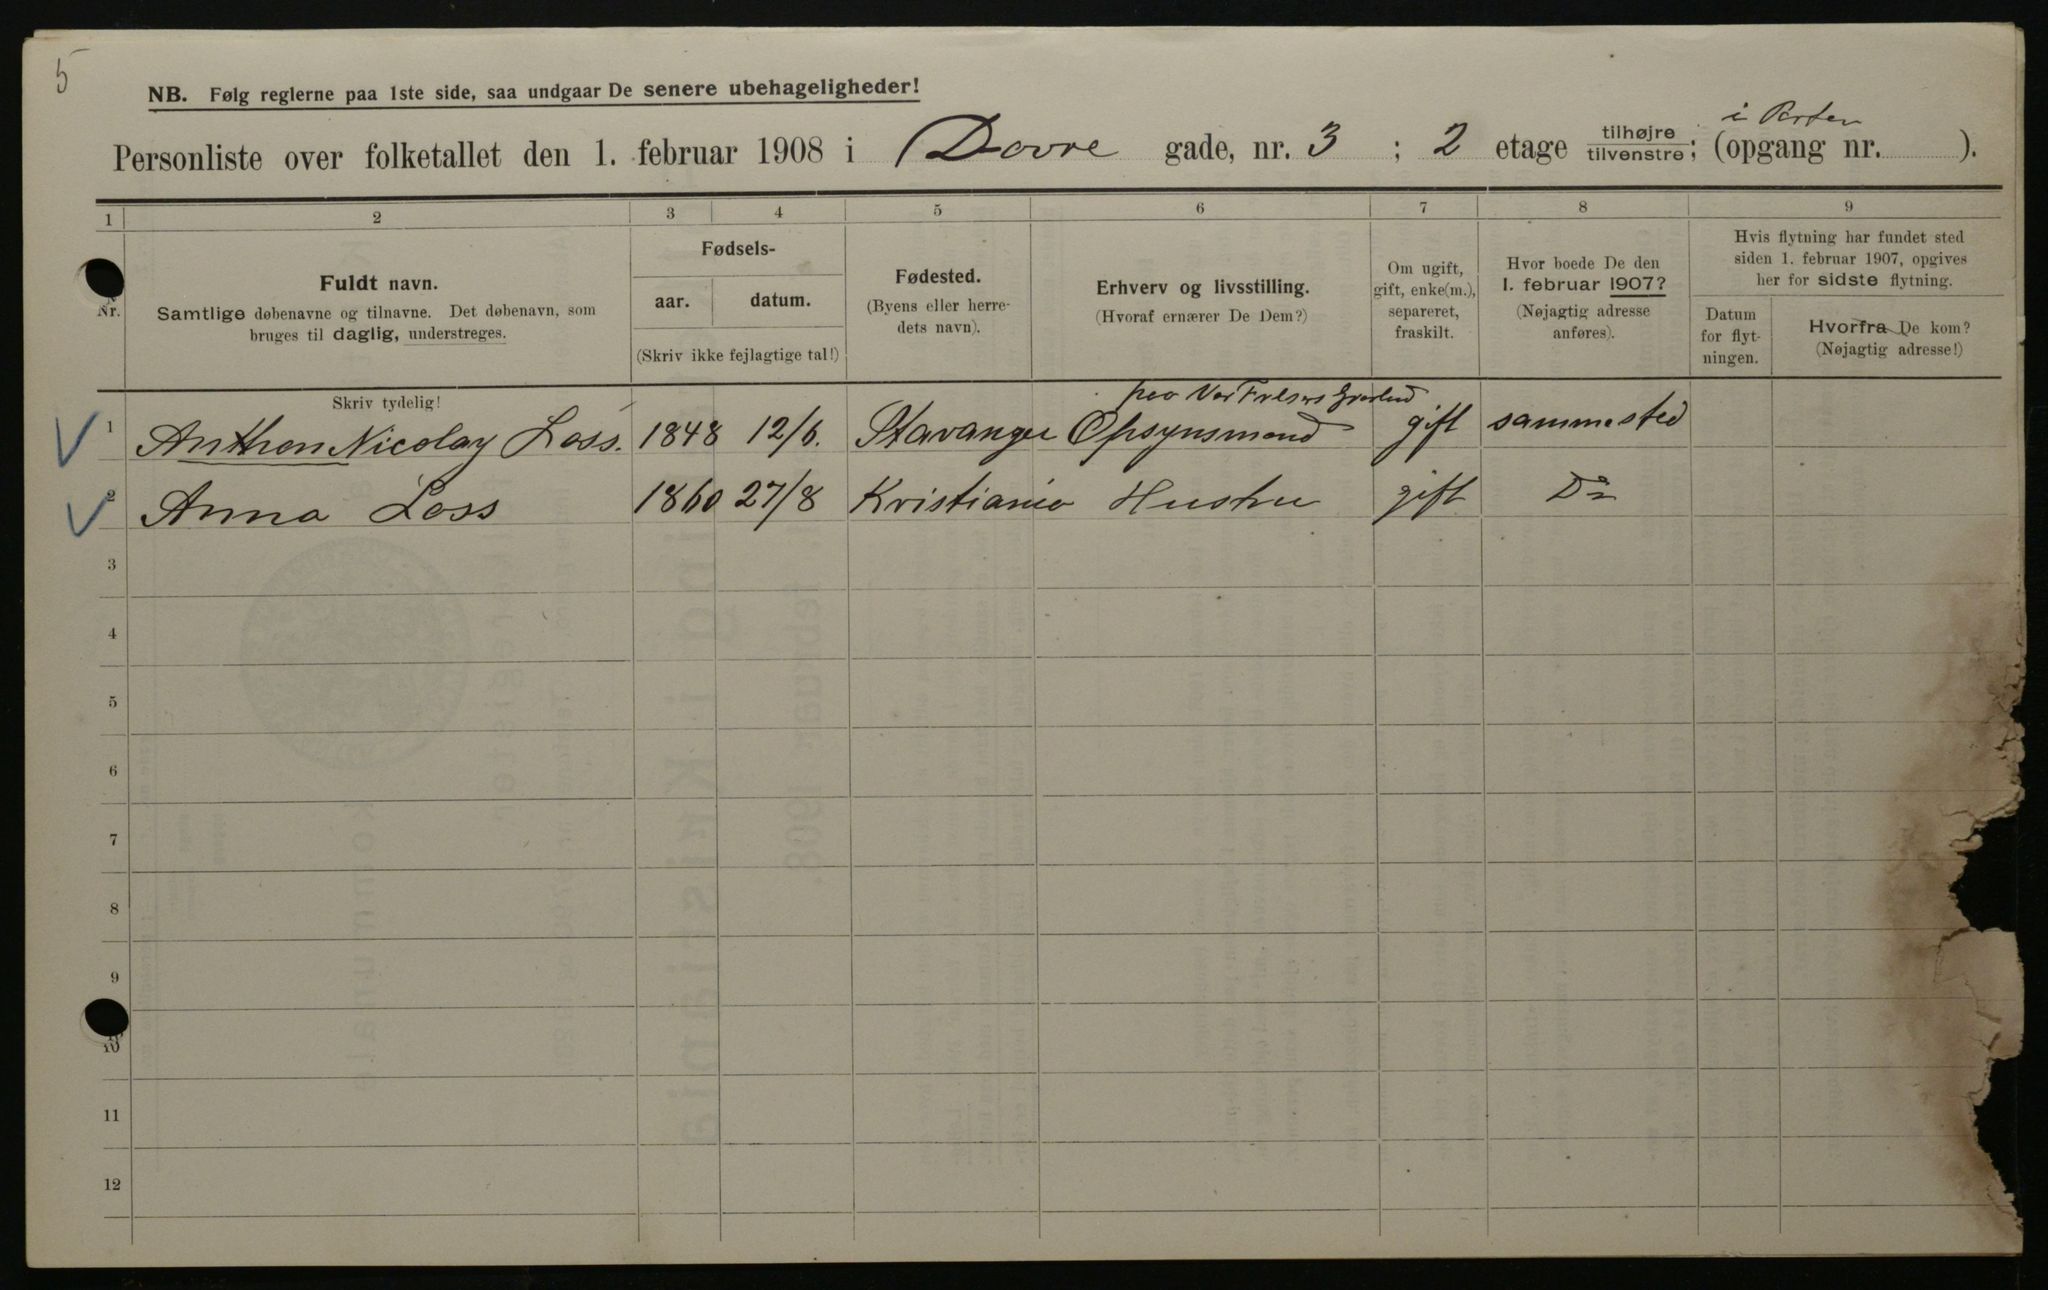 5
NB. Følg reglerne paa 1ste side, saa undgaar De senere ubehageligheder!
Personliste over folketallet den 1. februar 1908 i Dovre gade, nr. 3 ; 2 etage tilhøjre/tilvenstre; (opgang nr. ).
i Porten
1 2 3 4 5 6 7 8 9
Nr.
Fuldt navn.
Samtlige døbenavne og tilnavne. Det døbenavn, som
bruges til daglig, understreges.
Skriv tydelig!
Fødsels-
aar. datum.
(Skriv ikke fejlagtige tal!)
Fødested.
(Byens eller herre-
dets navn).
Erhverv og livsstilling.
(Hvoraf ernærer De Dem?)
Om ugift,
gift, enke(m.),
separeret,
fraskilt.
Hvor boede De den
1. februar 1907?
(Nøjagtig adresse
anføres).
Hvis flytning har fundet sted
siden 1. februar 1907, opgives
her for sidste flytning.
Datum
for flyt-
ningen.
Hvorfra De kom?
(Nøjagtig adresse!)
paa Vor Frelsers Gravlund
1 Anthon Nicolay Loss. 1848 12/6. Stavanger Opsynsmand gift sammested
2 Anna Loss 1860 27/8 Kristiania Hustru gift Do
3
4
5
6
7
8
9
10
11
12